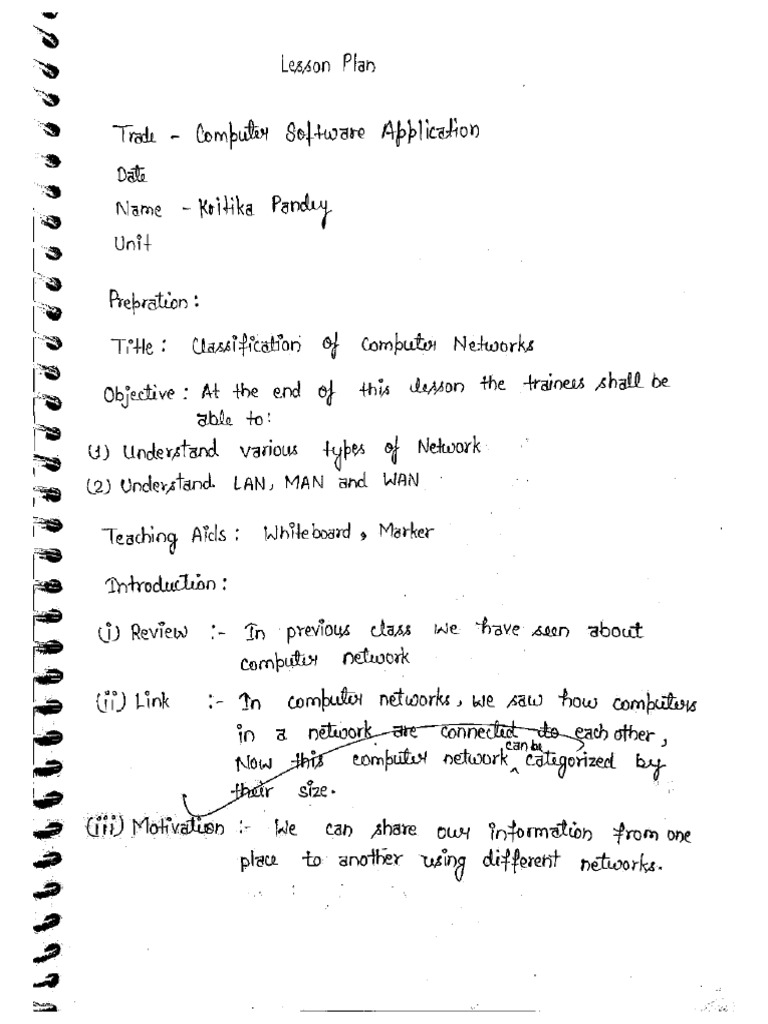 Lesson Plan
Trade - Computer Software Application
Date
Name - Kritika Pandey
Unit
Prepration :
Title : Classification of Computer Networks
Objective : At the end of this lesson the trainees shall be
able to :
(1) Understand various types of Network
(2) Understand LAN, MAN and WAN
Teaching Aids : Whiteboard, Marker
Introduction :
(i) Review :- In previous class we have seen about
computer network
(ii) Link :- In computer networks, we saw how computers
in a network are connected to each other,
Now this computer network can be categorized by
their size.
(iii) Motivation :- We can share our information from one
place to another using different networks.